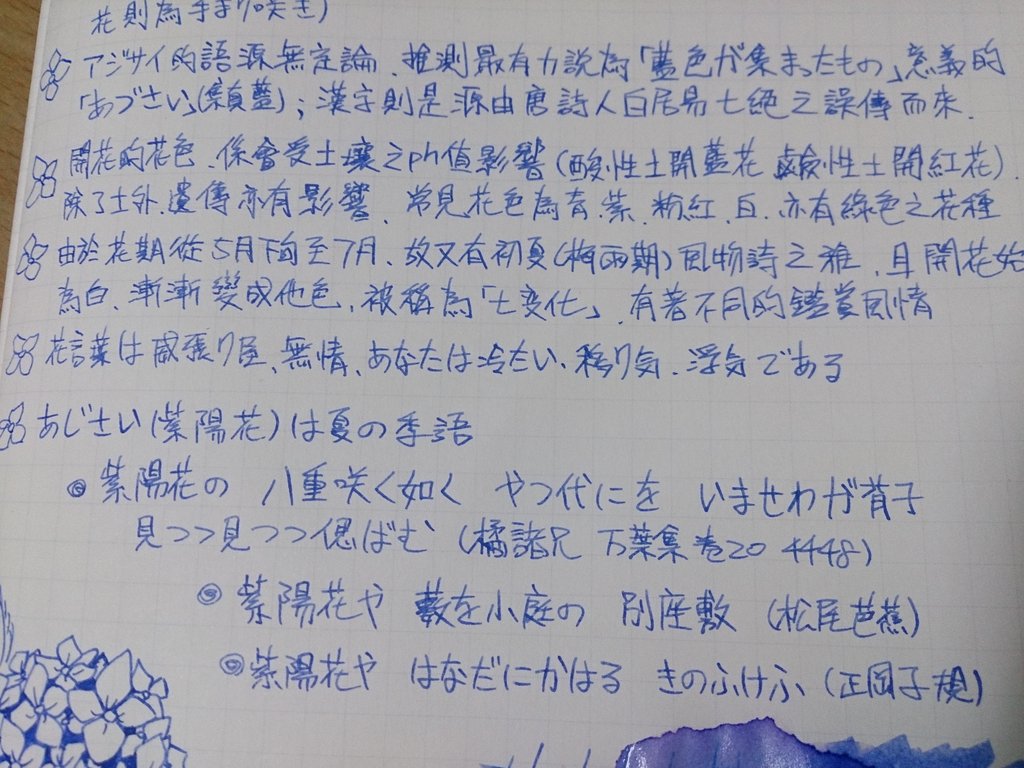 花則為手まり咲き)
アジサイ的語源無定論、推測最有力說為「藍色が集まったもの」意義的
「あづさい」(集真藍)；漢字則是源由唐詩人白居易七絕之誤傳而來.
開花的花色、係會受土壤之ph值影響(酸性土開藍花 鹼性土開紅花).
除了土外、遺傳亦有影響、常見花色為青.紫.粉紅.白.亦有綠色之花種
由於花期從5月下旬至7月、故又有初夏(梅雨期)風物詩之雅、且開花始
為白、漸漸變成他色、被稱為「七变化」、有著不同的鑑賞風情
花言葉は威張り屋、無情、あなたは冷たい、移り気、浮気である
あじさい(紫陽花)は夏の季語
◎紫陽花の 八重咲く如く やつ代にを いませわが背子
見つつ見つつ偲ばむ (橘諸兄 万葉集 巻20 4448)
◎紫陽花や 藪を小庭の 別座敷 (松尾芭蕉)
◎紫陽花や はなだにかはる きのふけふ (正岡子規)